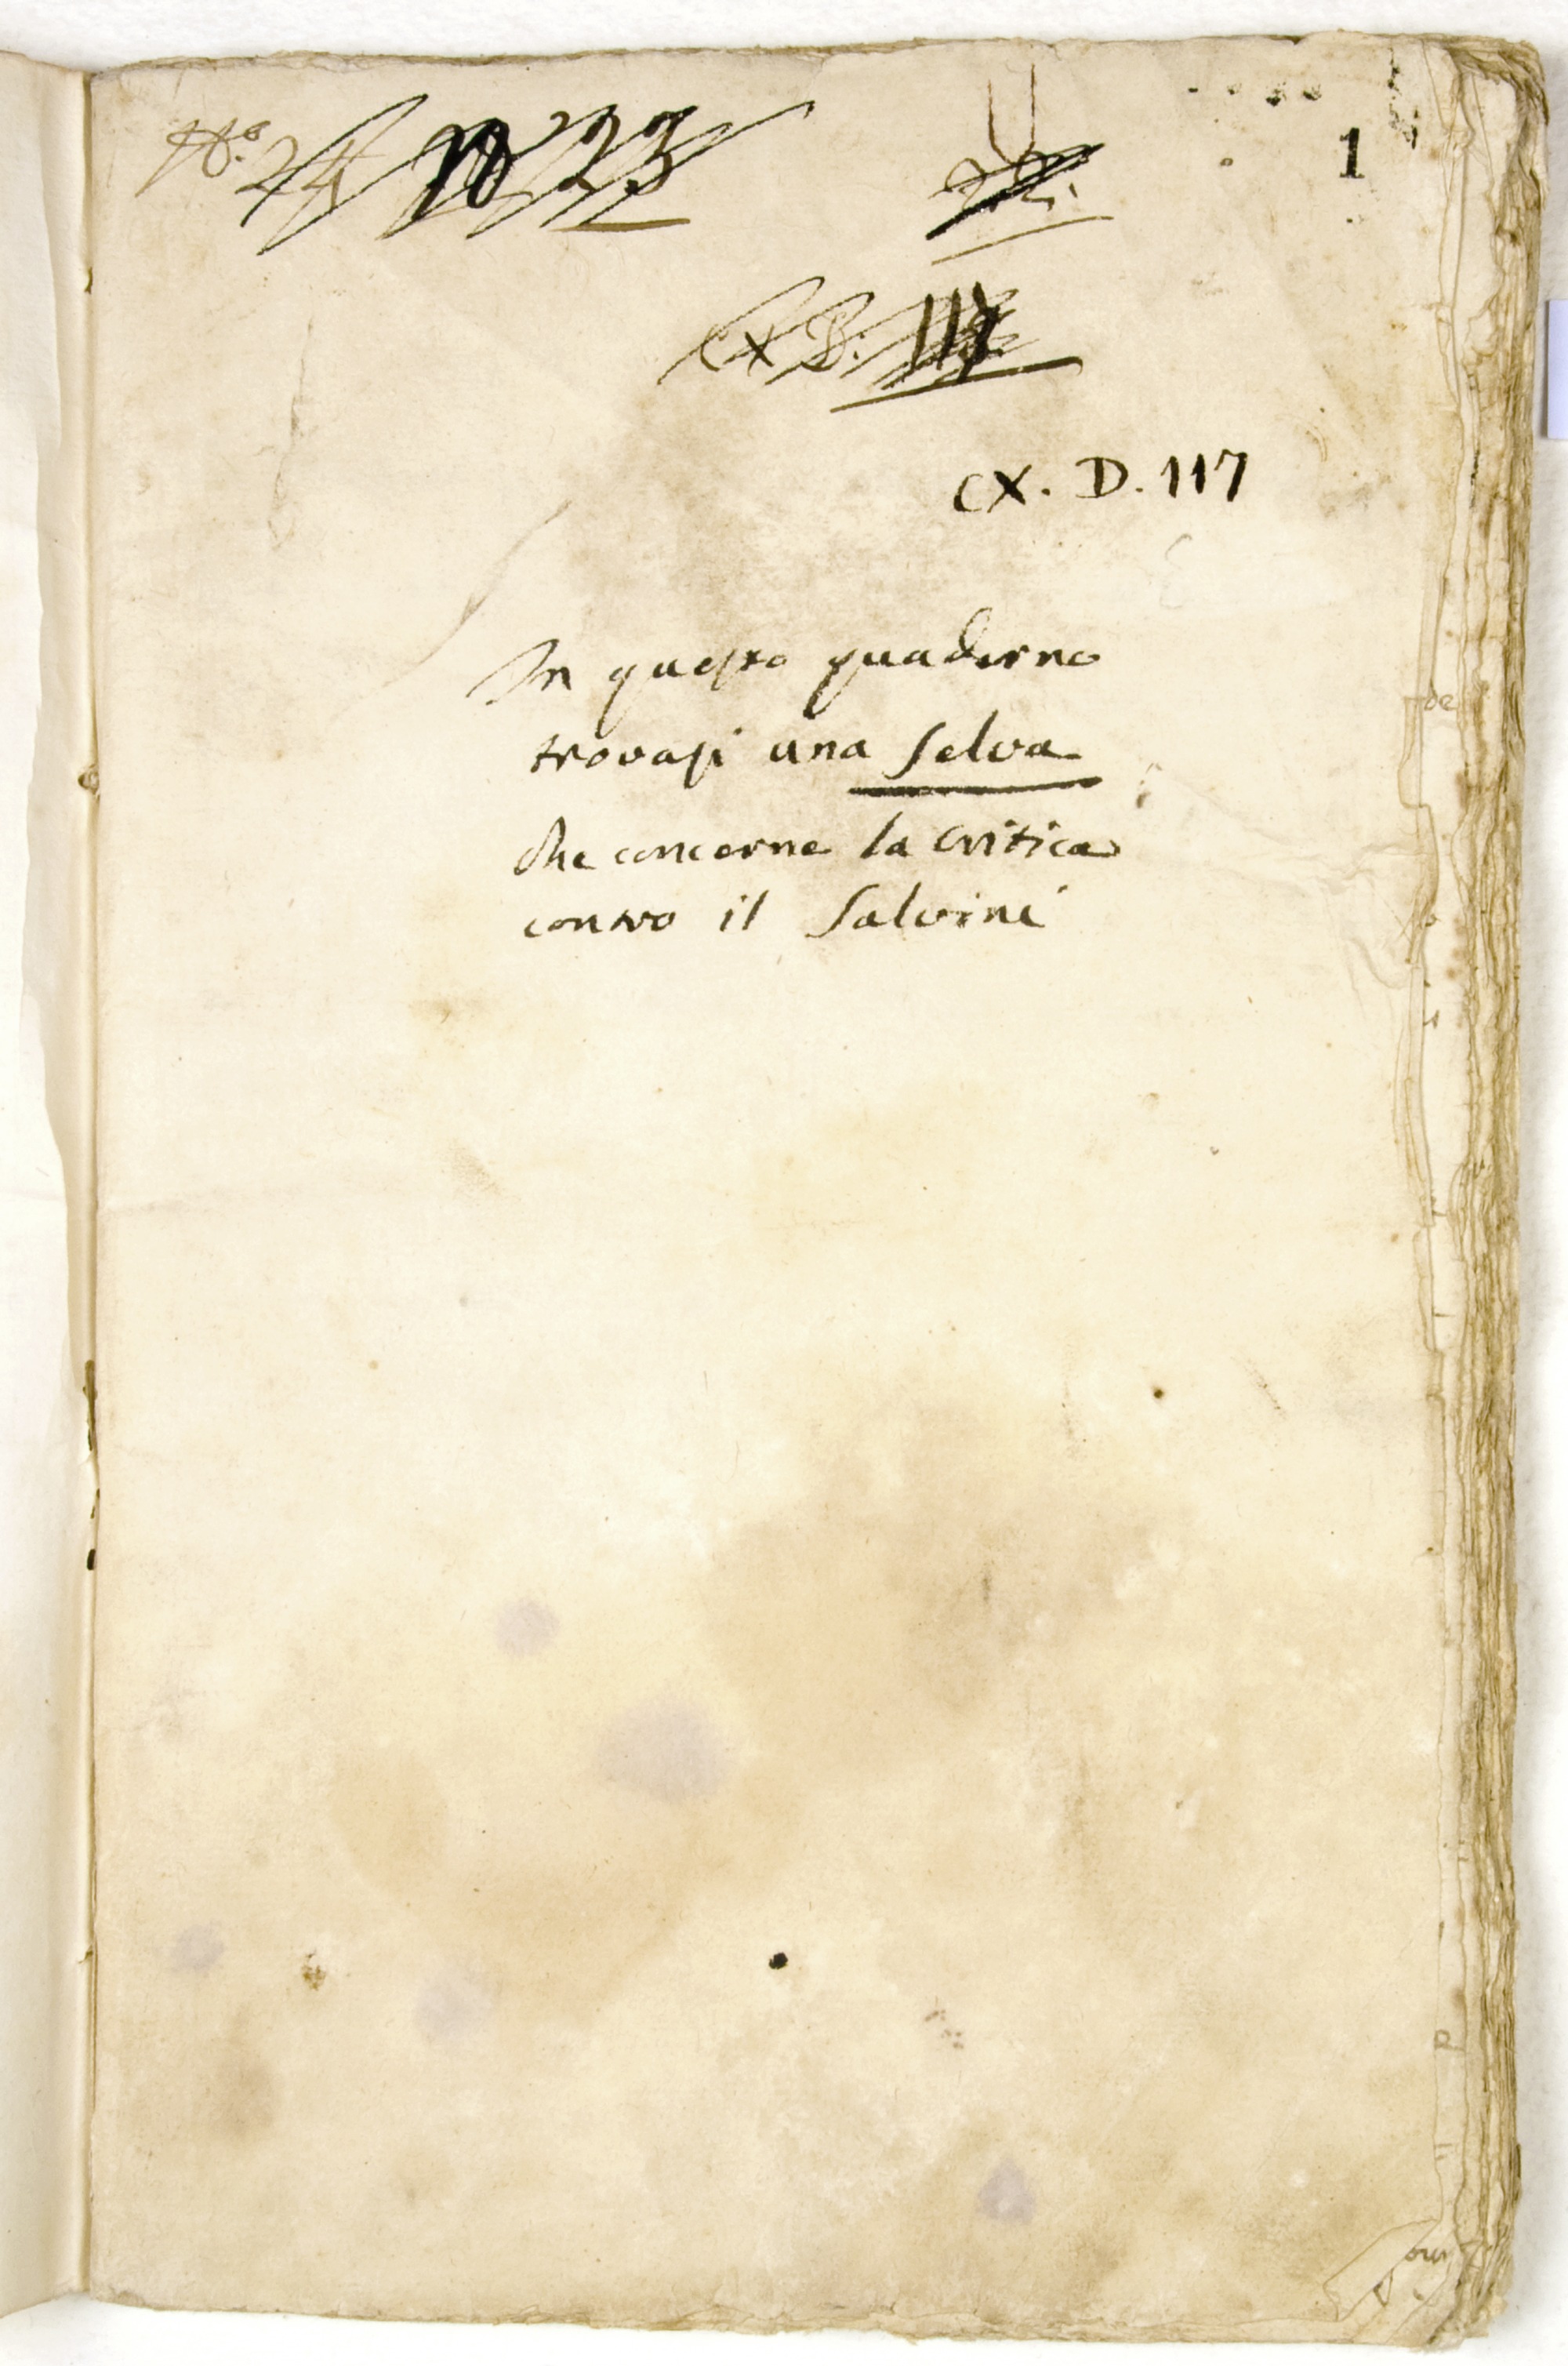 N.º 24 10 23
1
CX. D. 117
In questo quaderno
trovasi una Selva
che concerne la critica
contro il Salvini